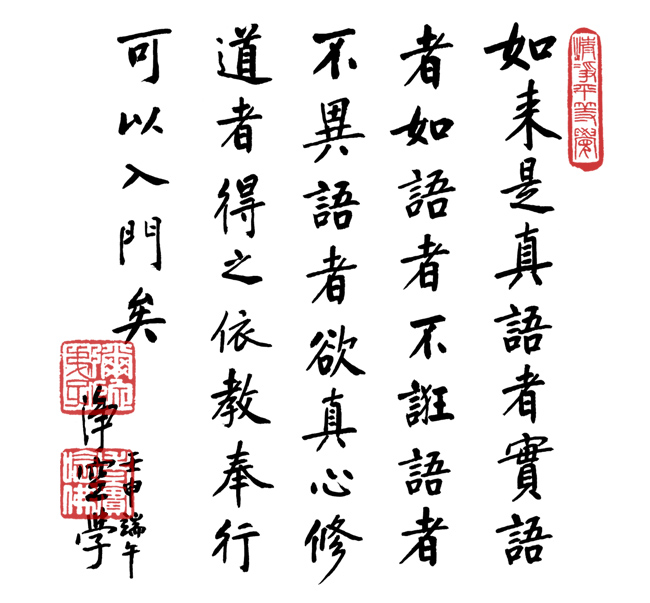 清淨平等覺
如来是真語者實語
者如語者不誑語者
不異語者欲真心修
道者得之依教奉行
可以入門矣
壬申端午
淨空学